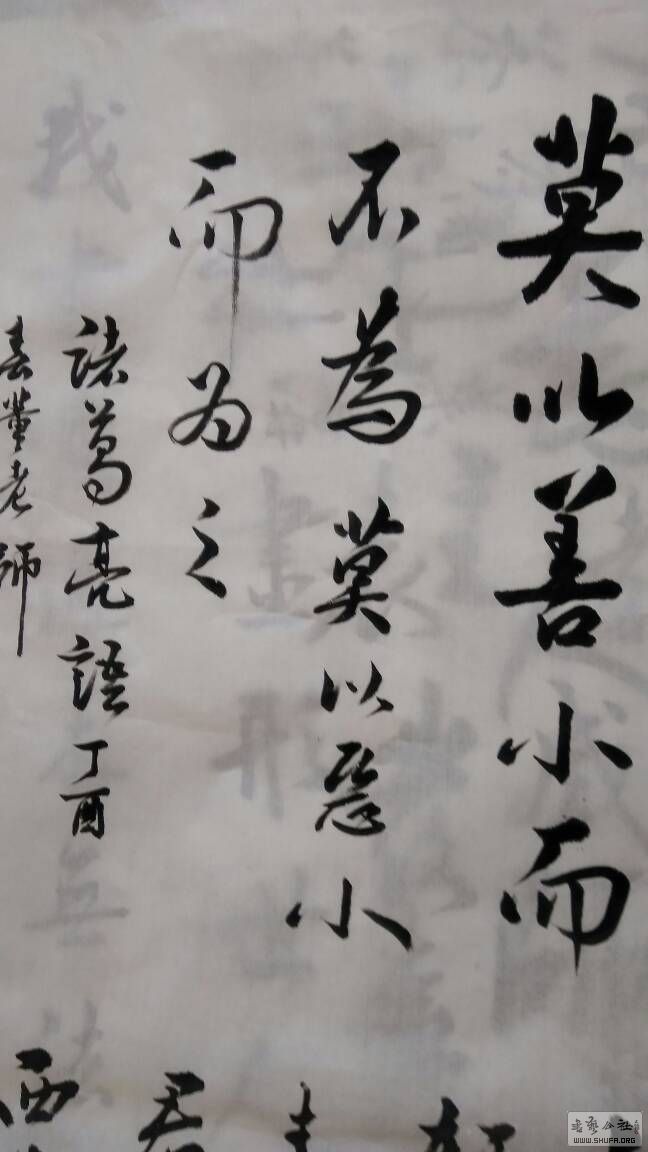 莫以善小而
不為莫以惡小
而为之
諸葛亮語丁酉
老師
西
君
WWW.SHUFA.ORG